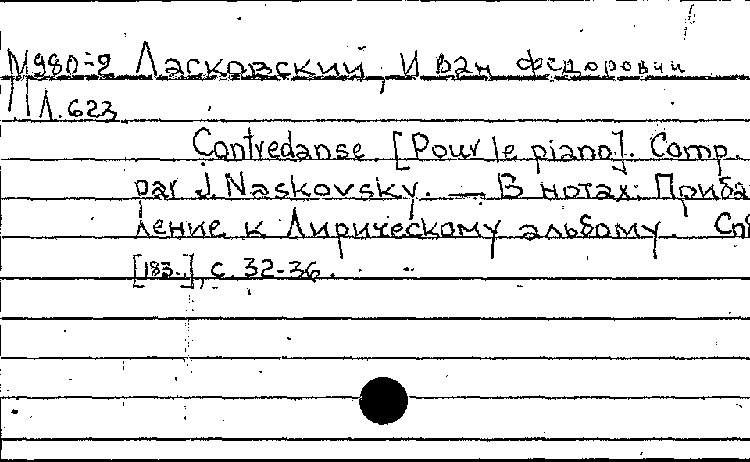 М980-2 Ласковский, Иван Федорович
Л.623
Contredanse. [Pour le piano]. Comp.
par J. Naskovsky. — В нотах: Прибав
ление к Лирическому альбому. Спб
[183..], с. 32-36.